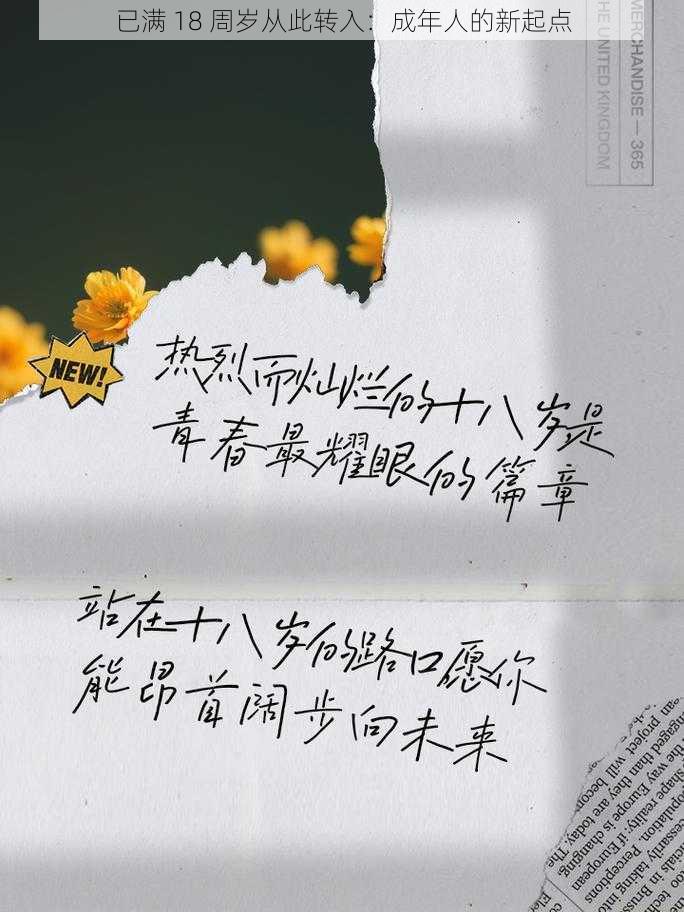 已满 18 周岁从此转入：成年人的新起点
MERCHANDISE — 365
THE UNITED KINGDOM
NEW!
热烈而灿烂的十八岁是
青春最耀眼的篇章
站在十八岁的路口愿你
能昂首阔步向未来
ean project will becom
engaged than they are today. The
the way Europe is changing
shape reality: if European
population. Perceptions
cessarily taking into
cials in Bruss
too tech